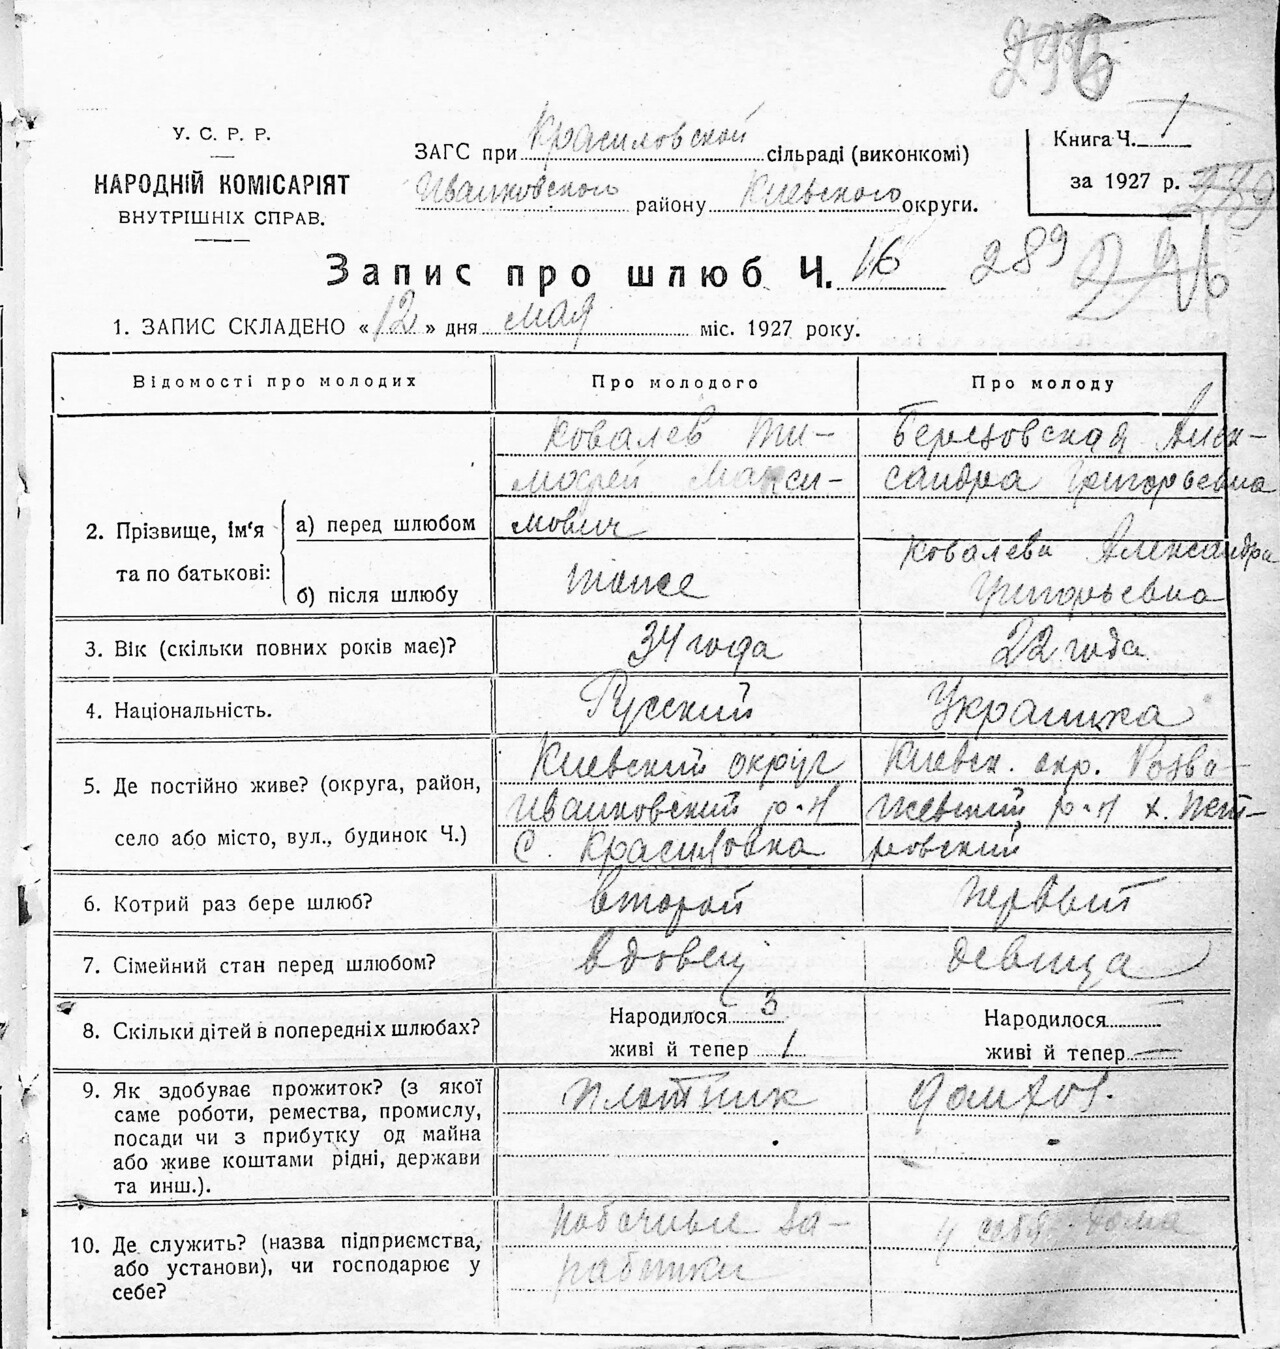 296
У. С. Р. Р.
НАРОДНІЙ КОМІСАРІЯТ
ВНУТРІШНІХ СПРАВ.
ЗАГС при Красиловской сільраді (виконкомі)
Иванковского району Киевского округи.
Книга Ч. 1
за 1927 р.
239
Запис про шлюб Ч. 16
289
1. ЗАПИС СКЛАДЕНО « 12 » дня мая міс. 1927 року.
Відомості про молодих
Про молодого
Про молоду
2. Прізвище, ім'я та по батькові:
а) перед шлюбом
Ковалев Ти-
мофей Макси-
мович
Березовская Алек-
сандра Григорьевна
б) після шлюбу
тоже
Ковалева Александра
Григорьевна
3. Вік (скільки повних років має)?
34 года
22 года
4. Національність.
Русский
Украинка
5. Де постійно живе? (округа, район,
село або місто, вул., будинок Ч.)
Киевский округ
Иванковский р-н
С. Красиловка
Киевск. окр. Розва-
жевский р-н х. Пет-
ровский
6. Котрий раз бере шлюб?
второй
первый
7. Сімейний стан перед шлюбом?
вдовец
девица
8. Скільки дітей в попередніх шлюбах?
Народилося 3
живі й тепер 1
Народилося —
живі й тепер —
9. Як здобуває прожиток? (з якої
саме роботи, ремества, промислу,
посади чи з прибутку од майна
або живе коштами рідні, держави
та инш.).
плотник
домхоз.
10. Де служить? (назва підприємства,
або установи), чи господарює у
себе?
побочные за-
работки
у себя дома